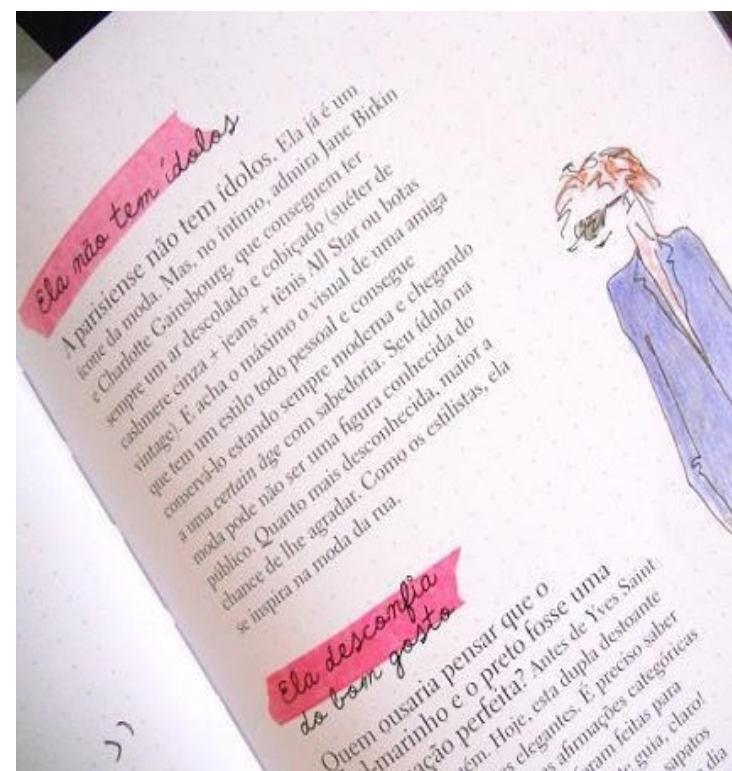 Ela não tem ídolos
A parisiense não tem ídolos. Ela já é um
ícone da moda. Mas, no íntimo, admira Jane Birkin
e Charlotte Gainsbourg, que conseguem ter
sempre um ar descolado e cobiçado (suéter de
cashmere cinza + jeans + tênis All Star ou botas
vintage). E acha o máximo o visual de uma amiga
que tem um estilo todo pessoal e consegue
conservá-lo estando sempre moderna e chegando
a uma certain âge com sabedoria. Seu ídolo na
moda pode não ser uma figura conhecida do
público. Quanto mais desconhecida, maior a
chance de lhe agradar. Como os estilistas, ela
se inspira na moda da rua.
Ela desconfia
do bom gosto
Quem ousaria pensar que o
l-marinho e o preto fosse uma
ação perfeita? Antes de Yves Saint
ém. Hoje, esta dupla destoante
es elegantes. É preciso saber
as afirmações categóricas
ram feitas para
te guia, claro!
sapatos
dia